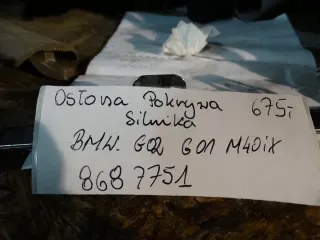 Osłona Pokrywa 675,-
Silnika
BMW. G02 G01 M40iX
868 7751